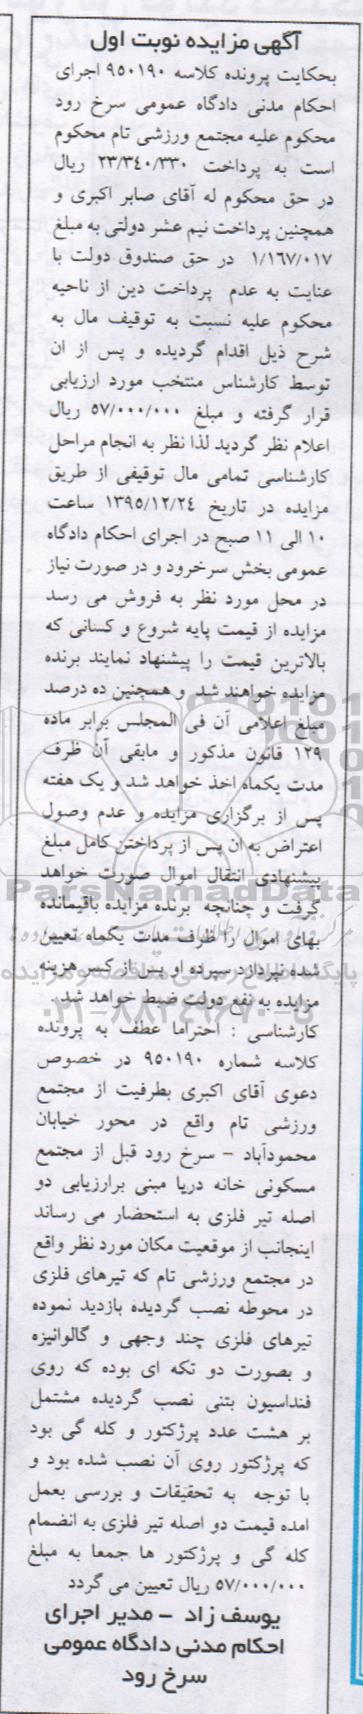 آگهی مزایده نوبت اول
بحکایت پرونده کلاسه ۹۵۰۱۹۰ اجرای
احکام مدنی دادگاه عمومی سرخ رود
محکوم علیه مجتمع ورزشی تام محکوم
است به پرداخت ۲۳/۳۴۰/۳۳۰ ریال
در حق محکوم له آقای صابر اکبری و
همچنین پرداخت نیم عشر دولتی به مبلغ
۱/۱۶۷/۰۱۷ در حق صندوق دولت با
عنایت به عدم پرداخت دین از ناحیه
محکوم علیه نسبت به توقیف مال به
شرح ذیل اقدام گردیده و پس از ان
توسط کارشناس منتخب مورد ارزیابی
قرار گرفته و مبلغ ۵۷/۰۰۰/۰۰۰ ریال
اعلام نظر گردید لذا نظر به انجام مراحل
کارشناسی تمامی مال توقیفی از طریق
مزایده در تاریخ ۱۳۹۵/۱۲/۲۴ ساعت
۱۰ الی ۱۱ صبح در اجرای احکام دادگاه
عمومی بخش سرخرود و در صورت نیاز
در محل مورد نظر به فروش می رسد
مزایده از قیمت پایه شروع و کسانی که
بالاترین قیمت را پیشنهاد نمایند برنده
مزایده خواهند شد و همچنین ده درصد
مبلغ اعلامی آن فی المجلس برابر ماده
۱۲۹ قانون مذکور و مابقی آن ظرف
مدت یکماه اخذ خواهد شد و یک هفته
پس از برگزاری مزایده و عدم وصول
اعتراض به ان پس از پرداختن کامل مبلغ
پیشنهادی انتقال اموال صورت خواهد
گرفت و چنانچه برنده مزایده باقیمانده
بهای اموال را ظرف مدت یکماه تعیین
شده نپردازد سپرده او پس از کسر هزینه
مزایده به نفع دولت ضبط خواهد شد
کارشناسی : احتراما عطف به پرونده
کلاسه شماره ۹۵۰۱۹۰ در خصوص
دعوی آقای اکبری بطرفیت از مجتمع
ورزشی تام واقع در محور خیابان
محمودآباد - سرخ رود قبل از مجتمع
مسکونی خانه دریا مبنی برارزیابی دو
اصله تیر فلزی به استحضار می رساند
اینجانب از موقعیت مکان مورد نظر واقع
در مجتمع ورزشی تام که تیرهای فلزی
در محوطه نصب گردیده بازدید نموده
تیرهای فلزی چند وجهی و گالوانیزه
و بصورت دو تکه ای بوده که روی
فنداسیون بتنی نصب گردیده مشتمل
بر هشت عدد پرژکتور و کله گی بود
که پرژکتور روی آن نصب شده بود و
با توجه به تحقیقات و بررسی بعمل
امده قیمت دو اصله تیر فلزی به انضمام
کله گی و پرژکتور ها جمعا به مبلغ
۵۷/۰۰۰/۰۰۰ ریال تعیین می گردد
یوسف زاد - مدیر اجرای
احکام مدنی دادگاه عمومی
سرخ رود
ParsNamadData
۰۲۱-۸۸۳۴۹۶۷۰-۵